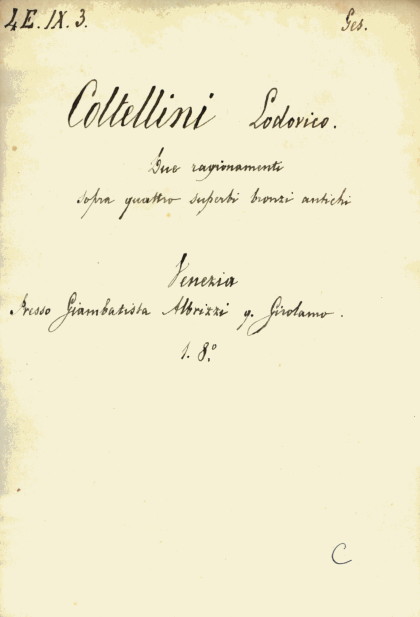 4E.IX.3. Ges.
Coltellini Lodovico.
Due ragionamenti
sopra quattro superbi bronzi antichi
Venezia
Presso Giambatista Albrizzi q. Girolamo.
1. 8.º
C